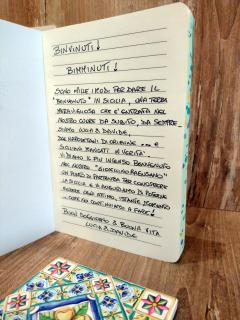 BINVINUTI!
BIMMINUTI!
SONO MILLE I MODI PER DARE IL
"BENVENUTO" IN SICILIA, UNA TERRA
MERAVIGLIOSA CHE E' ENTRATA NEL
NOSTRO CUORE DA SUBITO, DA SEMPRE.
SIAMO LUCA & DAVIDE,
DUE NAPOLETANI DI ORIGINE ... E
SICILIANI MANCATI IN VERITÀ.
VI DIAMO IL PIÙ INTENSO BENVENUTO
NEL NOSTRO "GIARDINO RAGUSANO"
UN PUNTO DI PARTENZA PER CONOSCERE
LA SICILIA E VI AUGURIAMO DI POTERNE
GODERE OGNI ATTIMO, ISTANTE, SCORCIO
... COME NOI CONTINUIAMO A FARE!
BUON SOGGIORNO & BUONA VITA
LUCA & DAVIDE